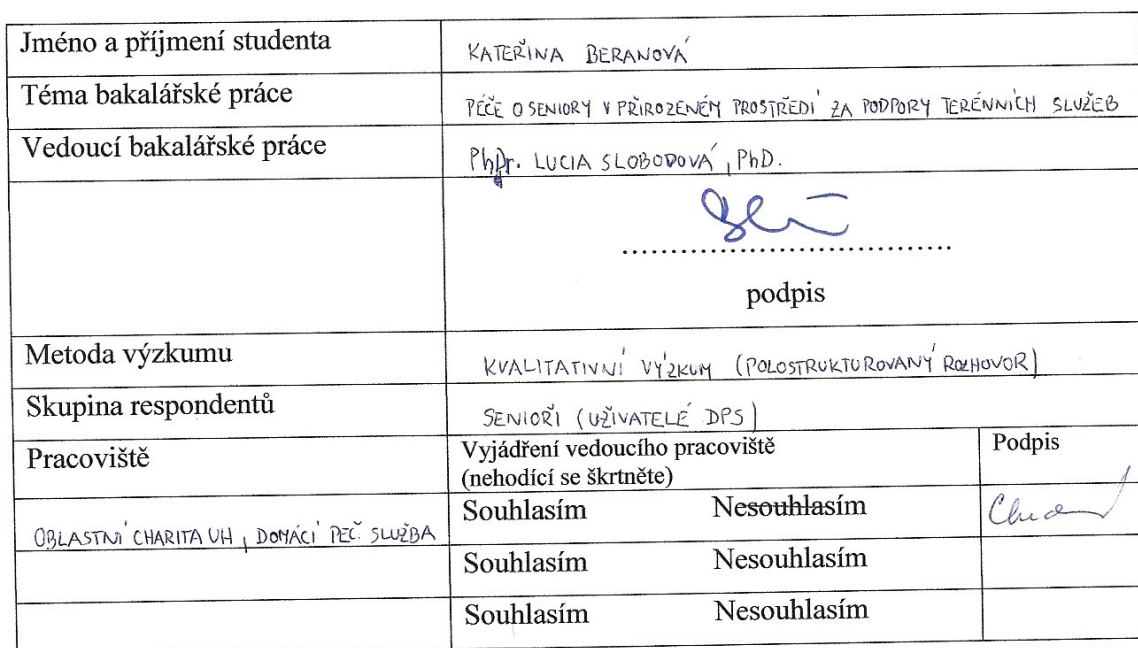 Jméno a příjmení studenta KATEŘINA BERANOVÁ
Téma bakalářské práce PÉČE O SENIORY V PŘIROZENÉM PROSTŘEDÍ ZA PODPORY TERÉNNÍCH SLUŽEB
Vedoucí bakalářské práce PhDr. LUCIA SLOBODOVÁ, PhD.
....................................
podpis
Metoda výzkumu KVALITATIVNÍ VÝZKUM (POLOSTRUKTUROVANÝ ROZHOVOR)
Skupina respondentů SENIOŘI (UŽIVATELÉ DPS)
Pracoviště Vyjádření vedoucího pracoviště Podpis
(nehodící se škrtněte)
OBLASTNÍ CHARITA UH, DOMÁCÍ PEČ. SLUŽBA Souhlasím Nesouhlasím
Souhlasím Nesouhlasím
Souhlasím Nesouhlasím